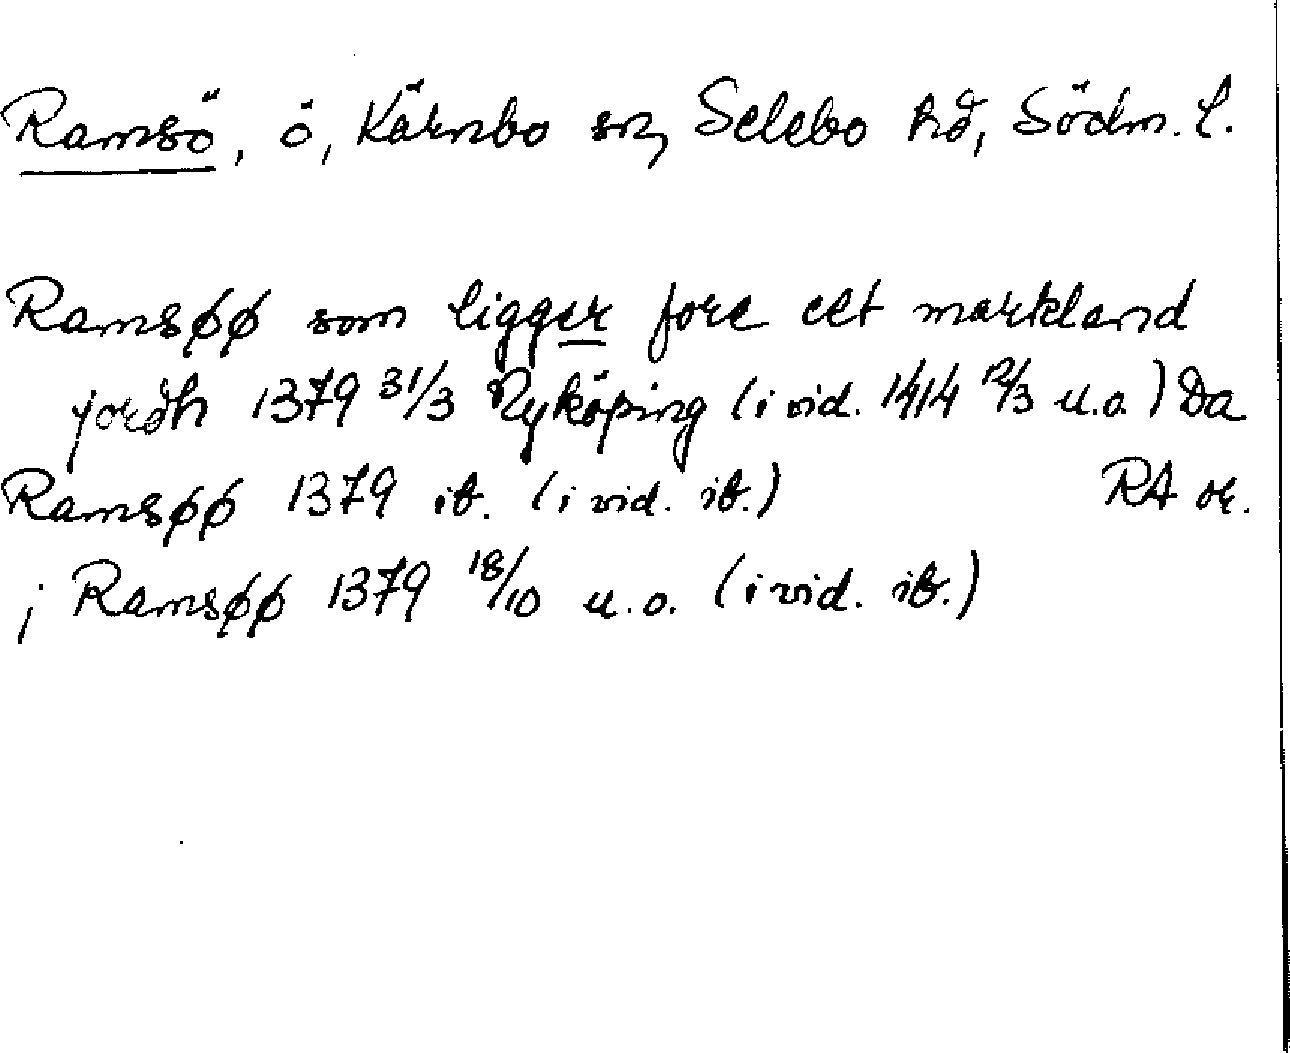 Ramsö, ö, Kärnbo sn, Selebo hd, Södm. l.
Ramsøø som ligger fore ett markland
jordh 1379 31/3 Nyköping (i vid. 1414 12/3 u.o.) Da
Ramsøø 1379 ib. (i vid. ib.) RA or.
j Ramsøø 1379 18/10 u.o. (i vid. ib.)